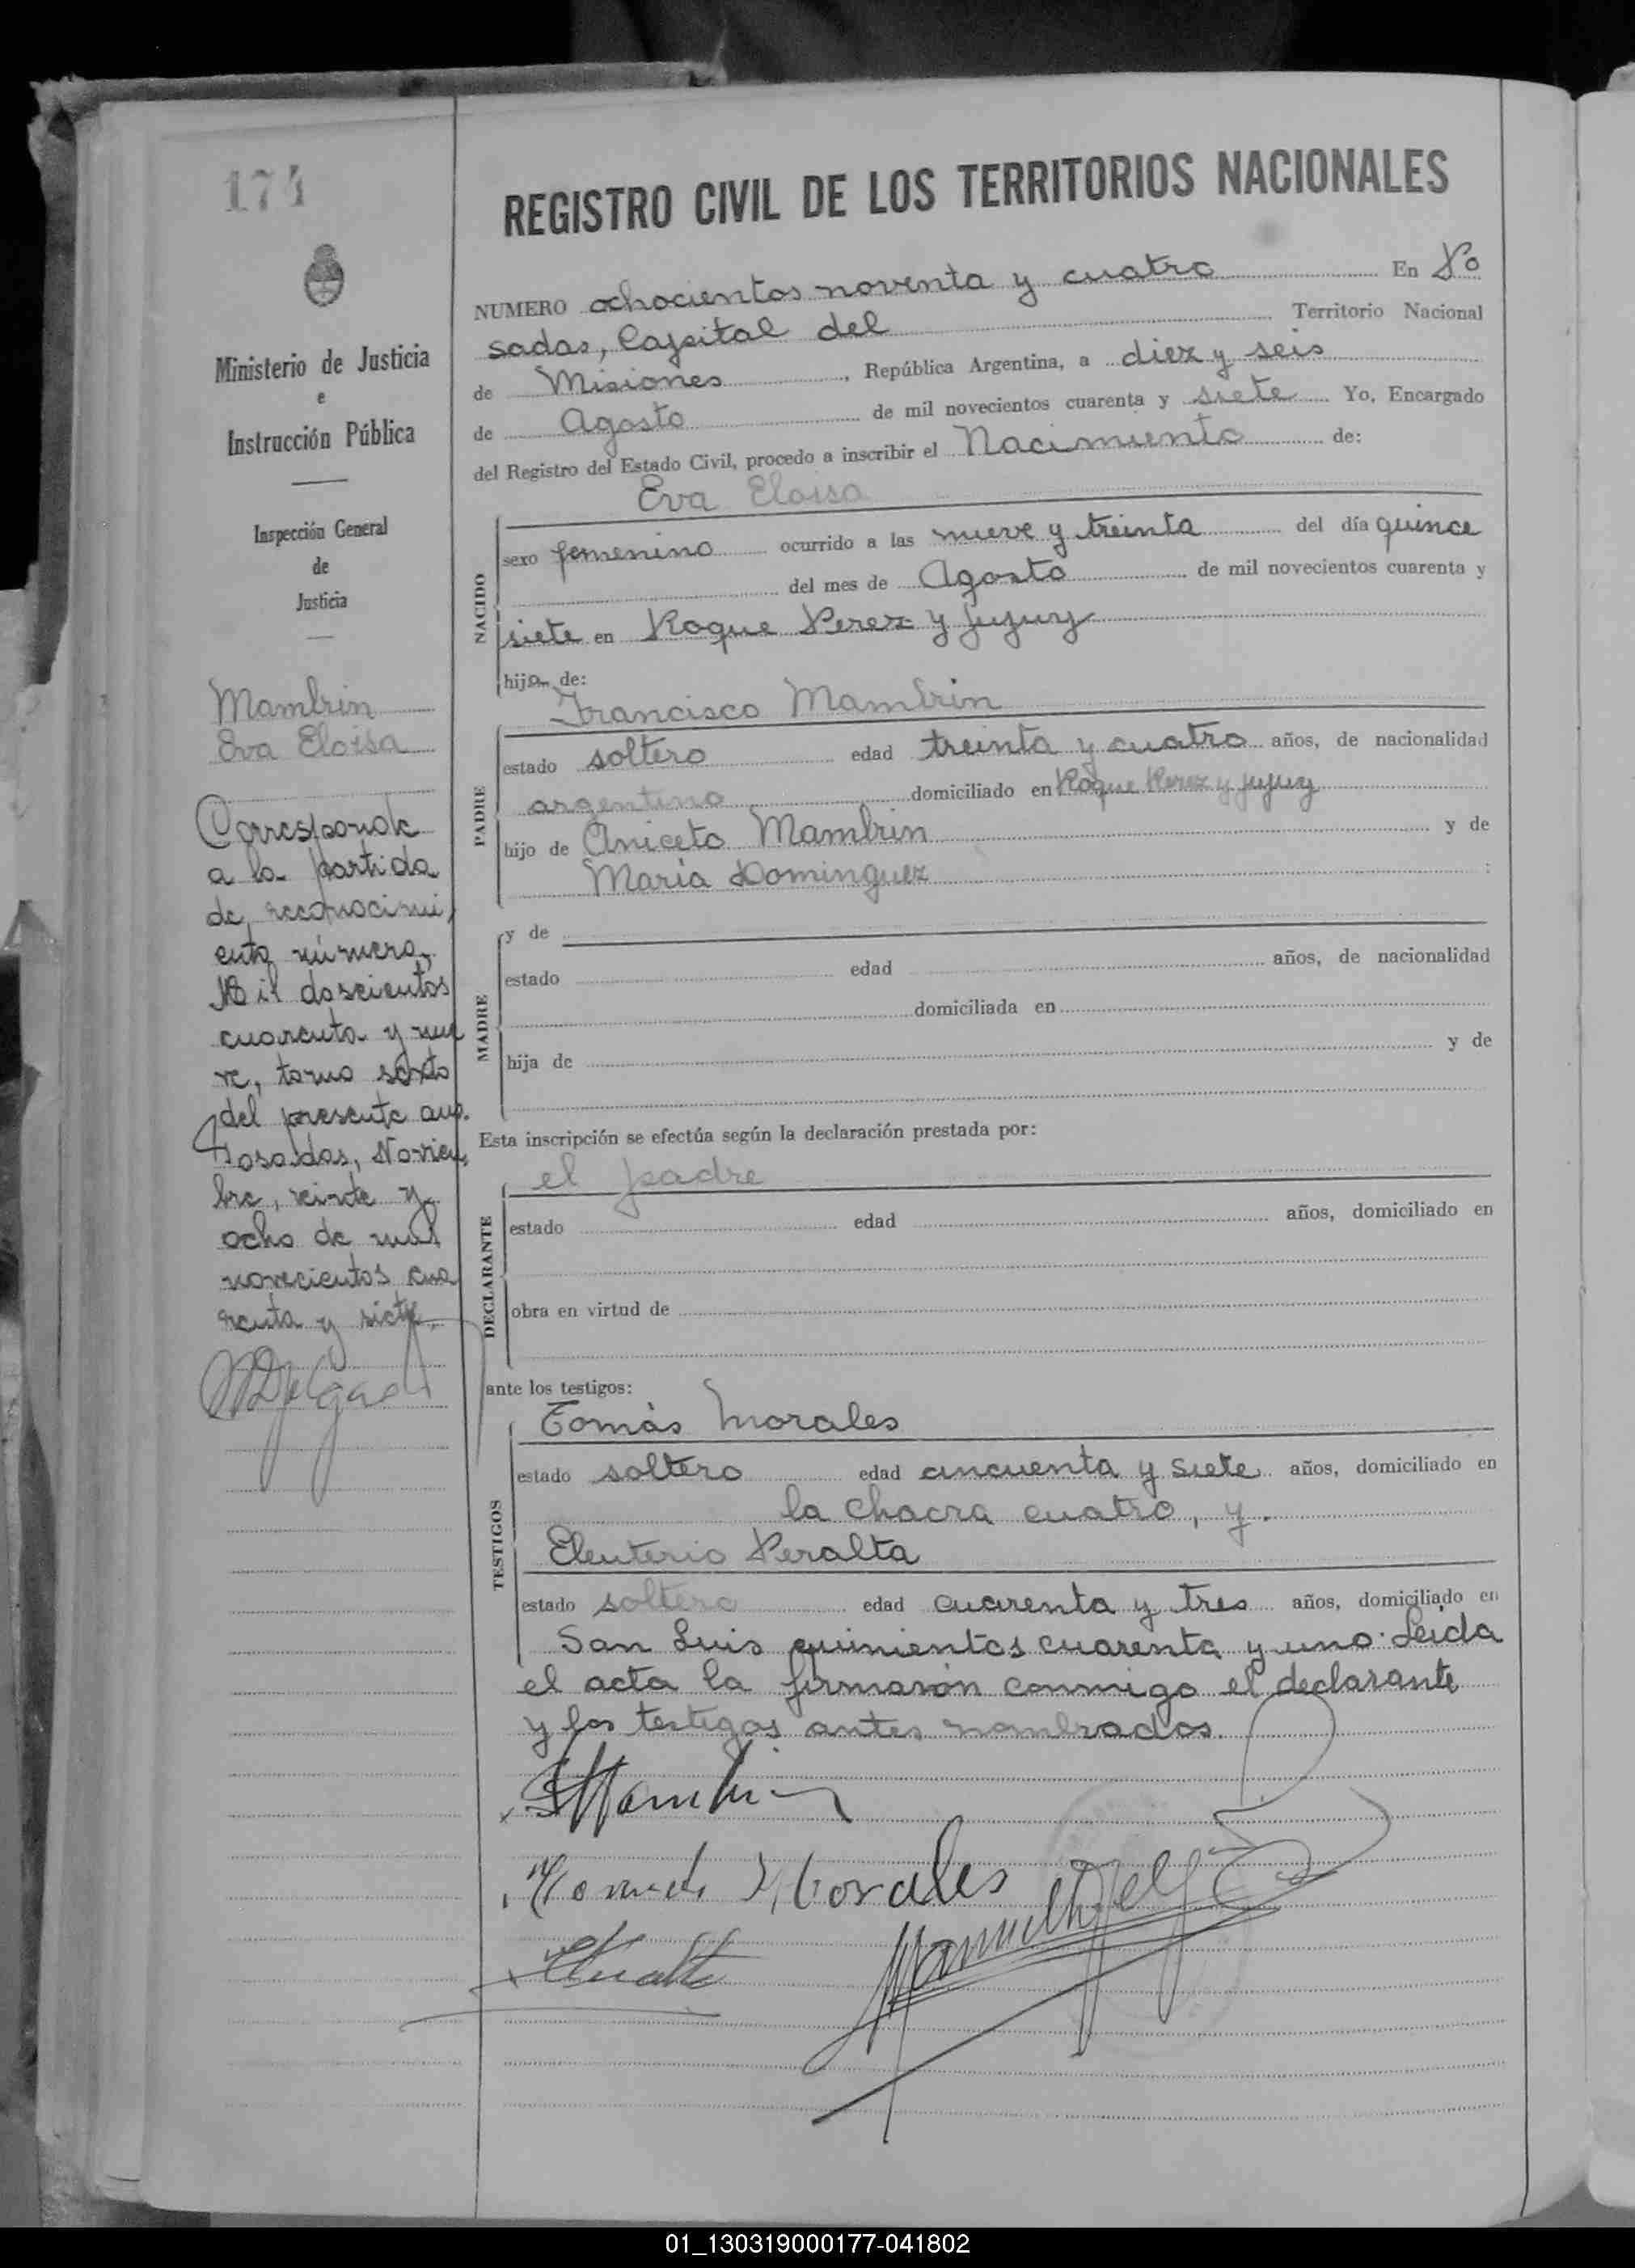 174
Ministerio de Justicia
e
Instrucción Pública
Inspección General
de
Justicia
Mambrin
Eva Eloisa
Corresponde
a la partida
de reconocimi,
ento número,
Mil doscientos
cuarenta y nue
ve, tomo sexto
del presente año.
Posadas, Noviem,
bre, veinte y
ocho de mil
novecientos cua
renta y siete.
REGISTRO CIVIL DE LOS TERRITORIOS NACIONALES
NUMERO ochocientos noventa y cuatro En Po
sadas, Capital del Territorio Nacional
de Misiones, República Argentina, a diez y seis
de Agosto de mil novecientos cuarenta y siete Yo, Encargado
del Registro del Estado Civil, procedo a inscribir el Nacimiento de:
Eva Eloisa
NACIDO
sexo femenino ocurrido a las nueve y treinta del día quince
del mes de Agosto de mil novecientos cuarenta y
siete en Roque Perez y Jujuy
hija de:
Francisco Mambrin
PADRE
estado soltero edad treinta y cuatro años, de nacionalidad
argentino domiciliado en Roque Perez y Jujuy
hijo de Aniceto Mambrin y de
María Dominguez :
MADRE
y de
estado edad años, de nacionalidad
domiciliada en
hija de y de
Esta inscripción se efectúa según la declaración prestada por:
el padre
DECLARANTE
estado edad años, domiciliado en
obra en virtud de
ante los testigos:
Tomàs Morales
TESTIGOS
estado soltero edad cincuenta y siete años, domiciliado en
la chacra cuatro, y.
Eleuterio Peralta
estado soltero edad cuarenta y tres años, domiciliado en
San Luis quinientos cuarenta y uno. Leida
el acta la firmaròn conmigo el declarante
y los testigos antes nombrados.
Morales
01_130319000177-041802